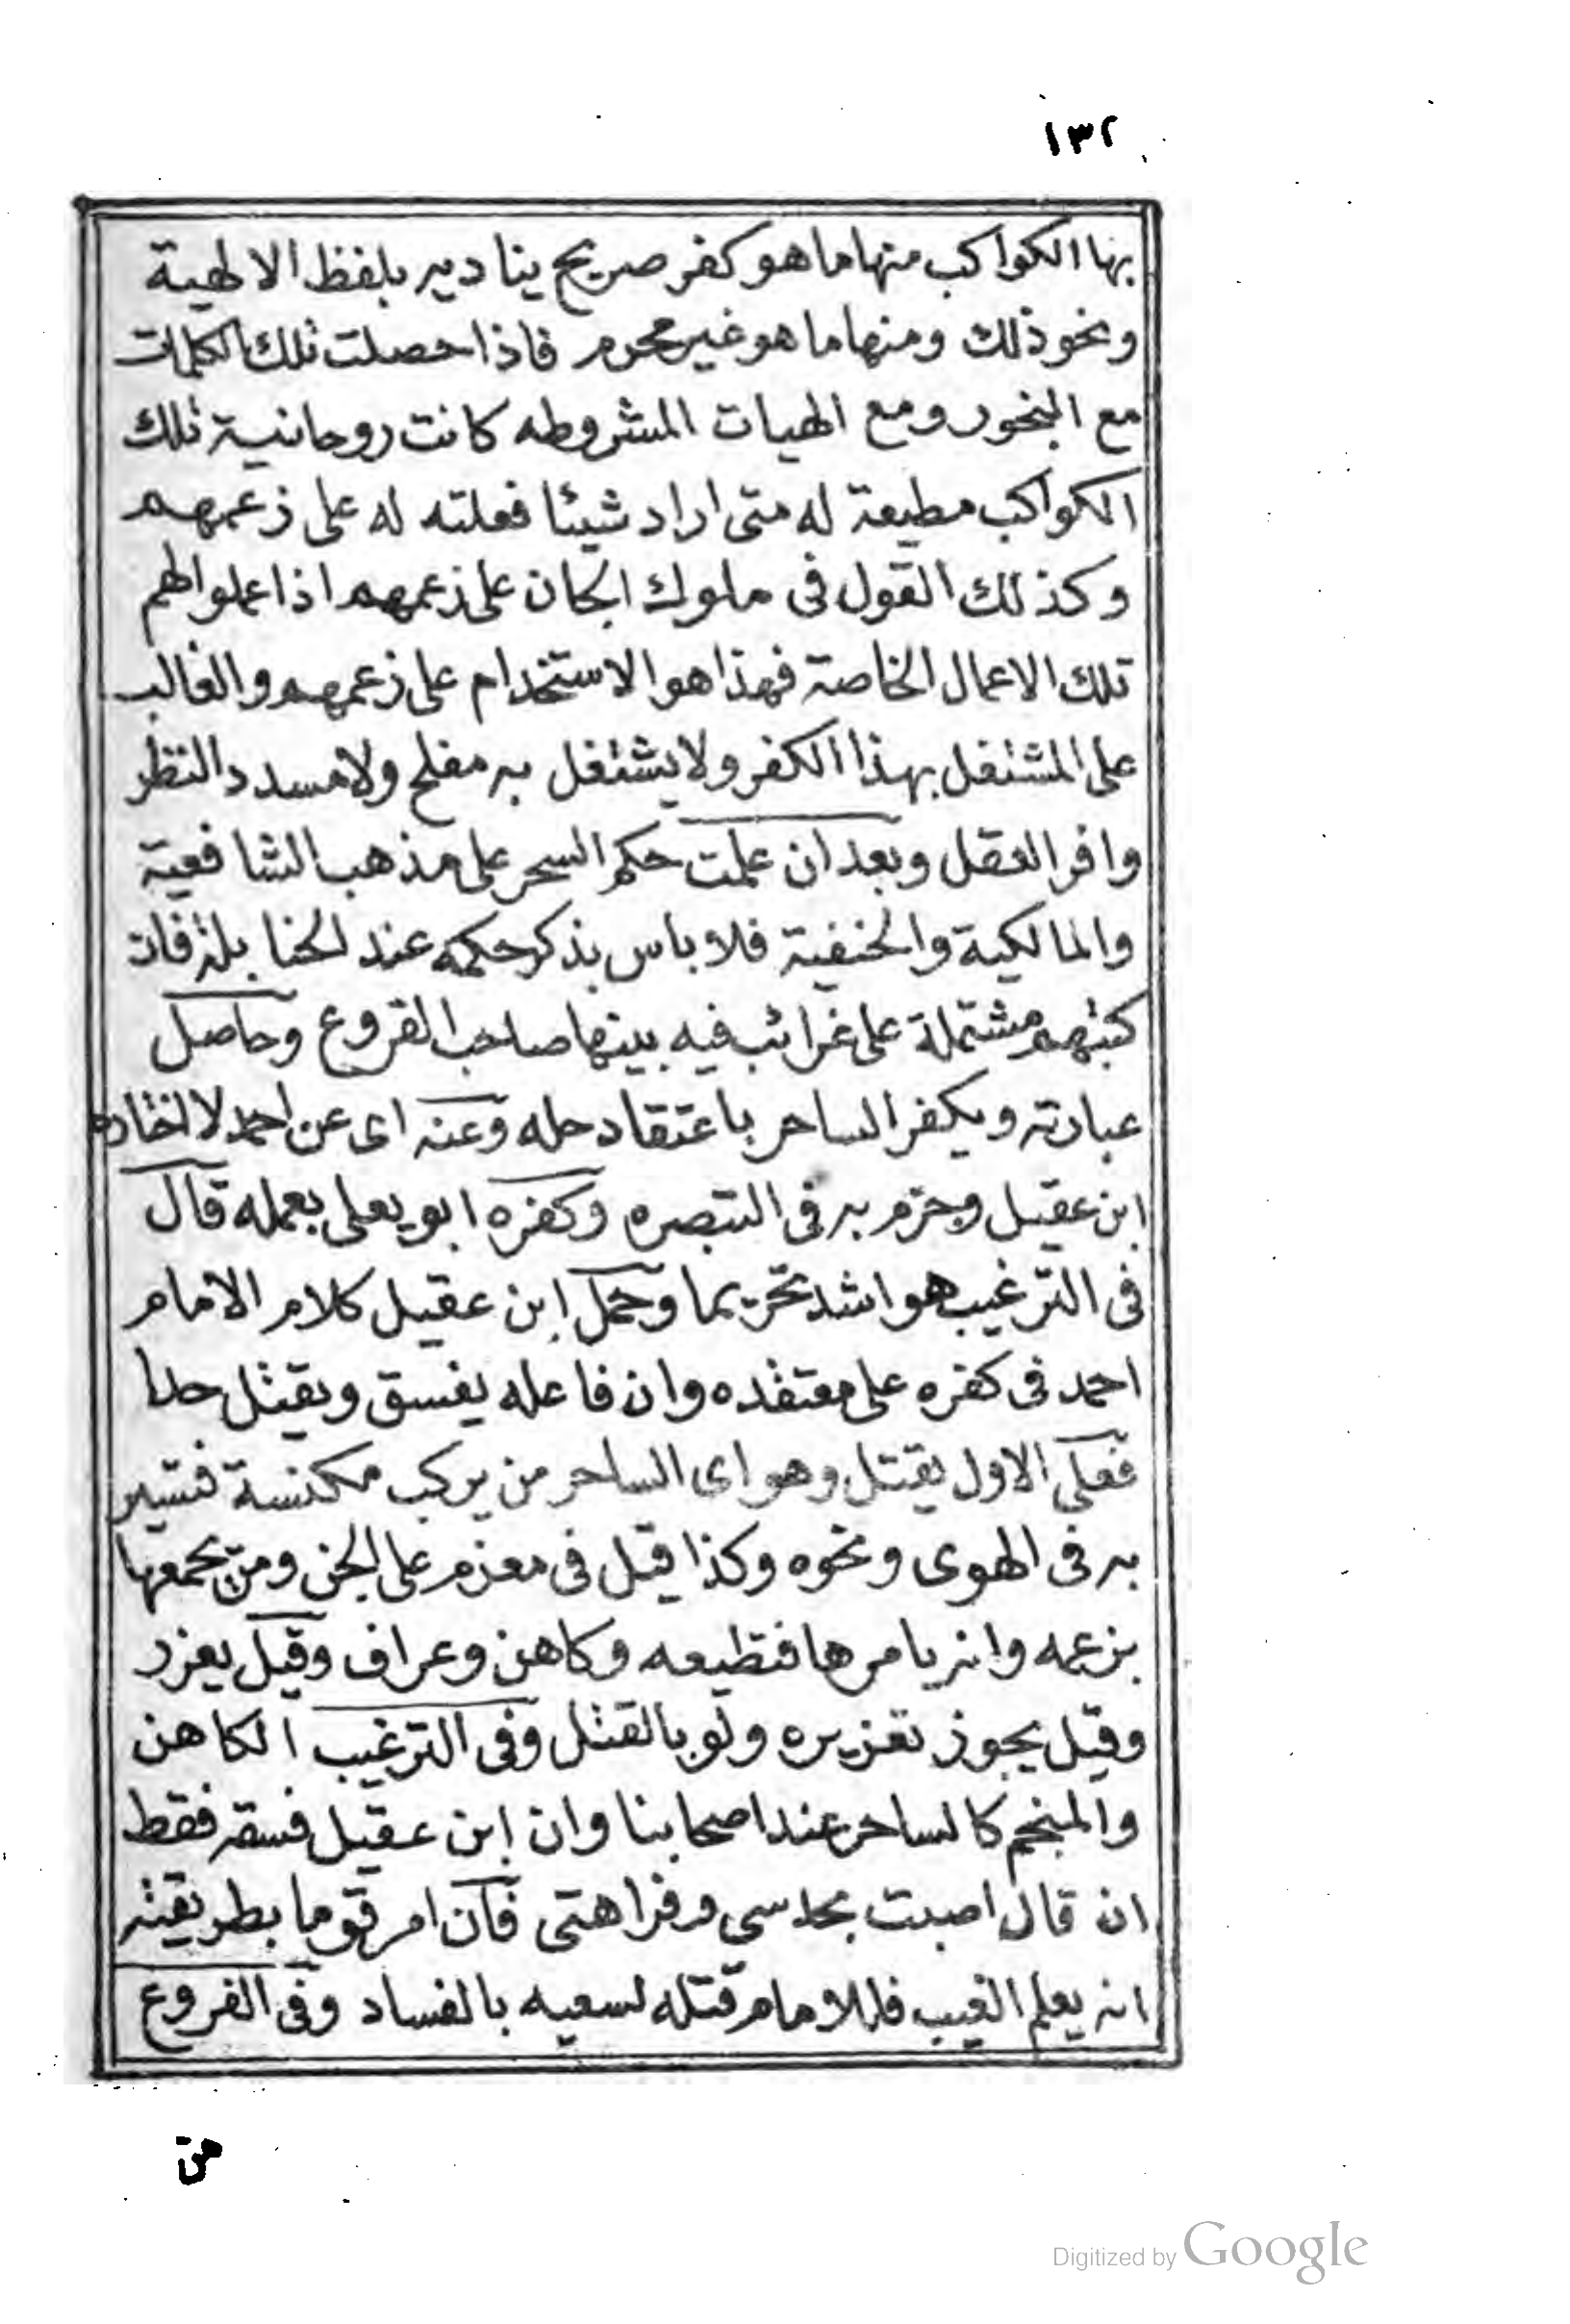 ١٣٢
بها الكواكب منها ما هو كفر صريح يناديه بلفظ الالهية
ونحو ذلك ومنها ما هو غير محرم فاذا حصلت تلك الكلمات
مع البخور ومع الهيات المشروطه كانت روحانية تلك
الكواكب مطيعة له متى اراد شيئا فعلته له على زعمهم
وكذلك القول في ملوك الجان على زعمهم اذا عملوا لهم
تلك الاعمال الخاصة فهذا هو الاستخدام على زعمهم والغالب
على المشتغل بهذا الكفر ولا يشتغل به مفلح ولا مسدد النظر
وافر العقل وبعد ان علمت حكم السحر على مذهب الشافعية
والمالكية والحنفية فلا باس بذكر حكمه عند الحنابلة فان
كتبهم مشتملة على غرائب فيه بينها صاحب الفروع وحاصل
عبارته ويكفر الساحر باعتقاد حله وعنه اى عن احمد لا اختاره
ابن عقيل وجزم به فى التبصره وكفره ابو يعلى بعمله قال
فى الترغيب هو اشد تحريما وحمل ابن عقيل كلام الامام
احمد فى كفره على معتقده وان فاعله يفسق ويقتل حدا
فعلى الاول يقتل وهو اى الساحر من يركب مكنسة فتسير
به فى الهوى ونحوه وكذا قيل فى معزم على الجن ومن يجمعها
بزعمه وانه يامرها فتطيعه وكاهن وعراف وقيل يعزر
وقيل يجوز تعزيره ولو بالقتل وفى الترغيب الكاهن
والمنجم كالساحر عند اصحابنا وان ابن عقيل فسقه فقط
ان قال اصبت بحدسى وفراهتى فان امر قوما بطريقته
انه يعلم الغيب فللامام قتله لسعيه بالفساد وفى الفروع
من
Digitized by Google